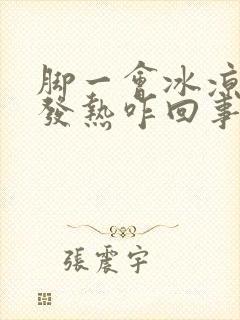 脚一會冰涼
發熱咋回事
張震宇